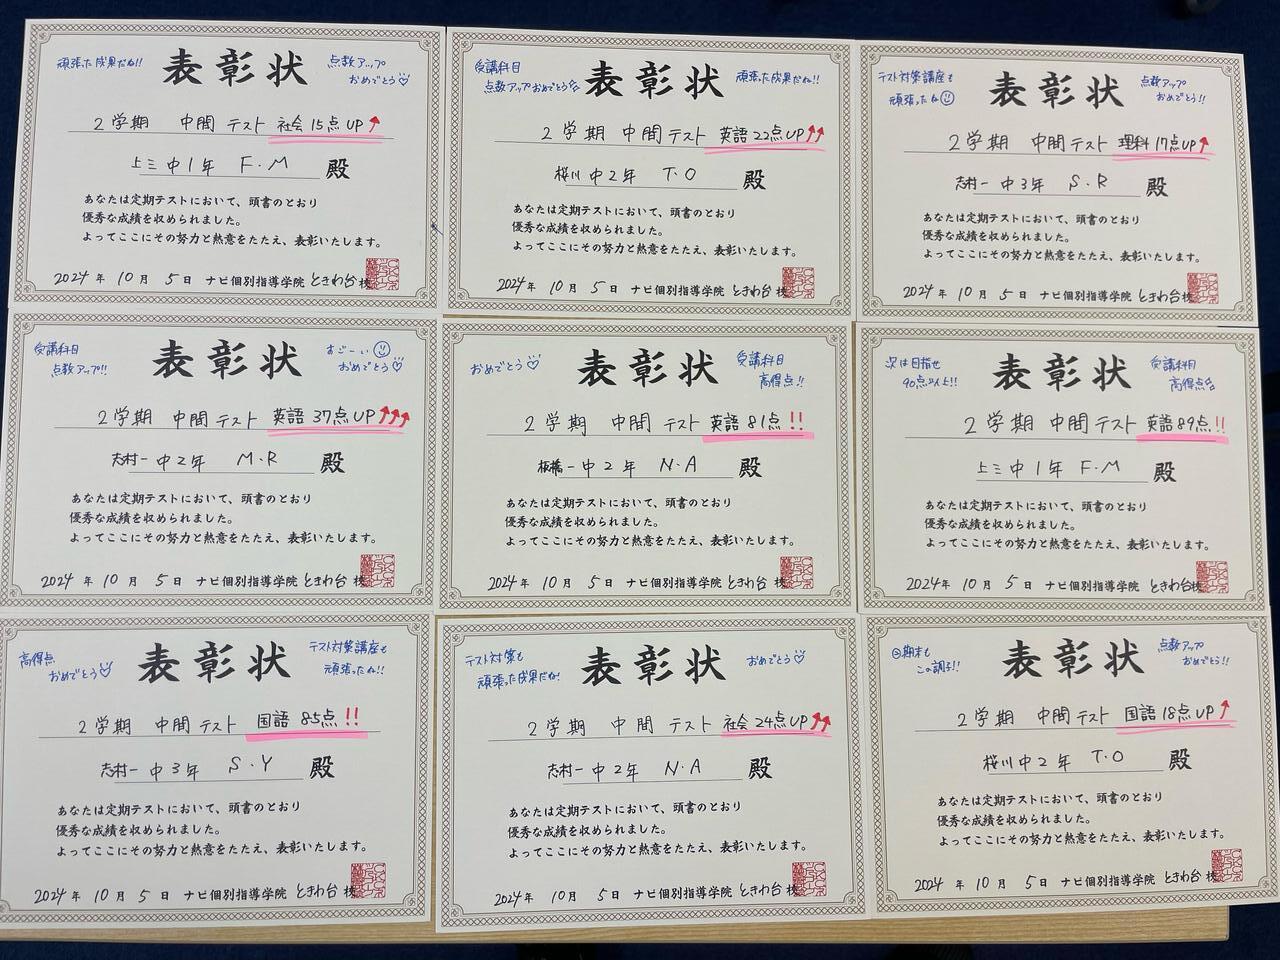 頑張った成果だね!!
表彰状
点数アップ
おめでとう♡
2学期 中間テスト 社会 15点UP↑
上三中1年 F・M 殿
あなたは定期テストにおいて、頭書のとおり
優秀な成績を収められました。
よってここにその努力と熱意をたたえ、表彰いたします。
2024年 10月 5日 ナビ個別指導学院 ときわ台校
受講科目
点数アップおめでとう
表彰状
頑張った成果だね!!
2学期 中間テスト 英語 22点UP↑↑
桜川中2年 T・O 殿
あなたは定期テストにおいて、頭書のとおり
優秀な成績を収められました。
よってここにその努力と熱意をたたえ、表彰いたします。
2024年 10月 5日 ナビ個別指導学院 ときわ台校
テスト対策講座も
頑張ったね
表彰状
点数アップ
おめでとう!!
2学期 中間テスト 理科 17点UP↑
志村一中3年 S・R 殿
あなたは定期テストにおいて、頭書のとおり
優秀な成績を収められました。
よってここにその努力と熱意をたたえ、表彰いたします。
2024年 10月 5日 ナビ個別指導学院 ときわ台校
受講科目
点数アップ!!
表彰状
すごーい
おめでとう♡
2学期 中間テスト 英語 37点UP↑↑↑
志村一中2年 M・R 殿
あなたは定期テストにおいて、頭書のとおり
優秀な成績を収められました。
よってここにその努力と熱意をたたえ、表彰いたします。
2024年 10月 5日 ナビ個別指導学院 ときわ台校
おめでとう♡
表彰状
受講科目
高得点!!
2学期 中間テスト 英語 81点!!
板橋一中2年 N・A 殿
あなたは定期テストにおいて、頭書のとおり
優秀な成績を収められました。
よってここにその努力と熱意をたたえ、表彰いたします。
2024年 10月 5日 ナビ個別指導学院 ときわ台校
次は目指せ
90点以上!!
表彰状
受講科目
高得点
2学期 中間テスト 英語 89点!!
上三中1年 F・M 殿
あなたは定期テストにおいて、頭書のとおり
優秀な成績を収められました。
よってここにその努力と熱意をたたえ、表彰いたします。
2024年 10月 5日 ナビ個別指導学院 ときわ台校
高得点
おめでとう♡
表彰状
テスト対策講座も
頑張ったね!!
2学期 中間テスト 国語 85点!!
志村一中3年 S・Y 殿
あなたは定期テストにおいて、頭書のとおり
優秀な成績を収められました。
よってここにその努力と熱意をたたえ、表彰いたします。
2024年 10月 5日 ナビ個別指導学院 ときわ台校
テスト対策も
頑張った成果だね!
表彰状
おめでとう♡
2学期 中間テスト 社会 24点UP↑↑
志村一中2年 N・A 殿
あなたは定期テストにおいて、頭書のとおり
優秀な成績を収められました。
よってここにその努力と熱意をたたえ、表彰いたします。
2024年 10月 5日 ナビ個別指導学院 ときわ台校
期末も
この調子!!
表彰状
点数アップ
おめでとう!!
2学期 中間テスト 国語 18点UP↑
桜川中2年 T・O 殿
あなたは定期テストにおいて、頭書のとおり
優秀な成績を収められました。
よってここにその努力と熱意をたたえ、表彰いたします。
2024年 10月 5日 ナビ個別指導学院 ときわ台校